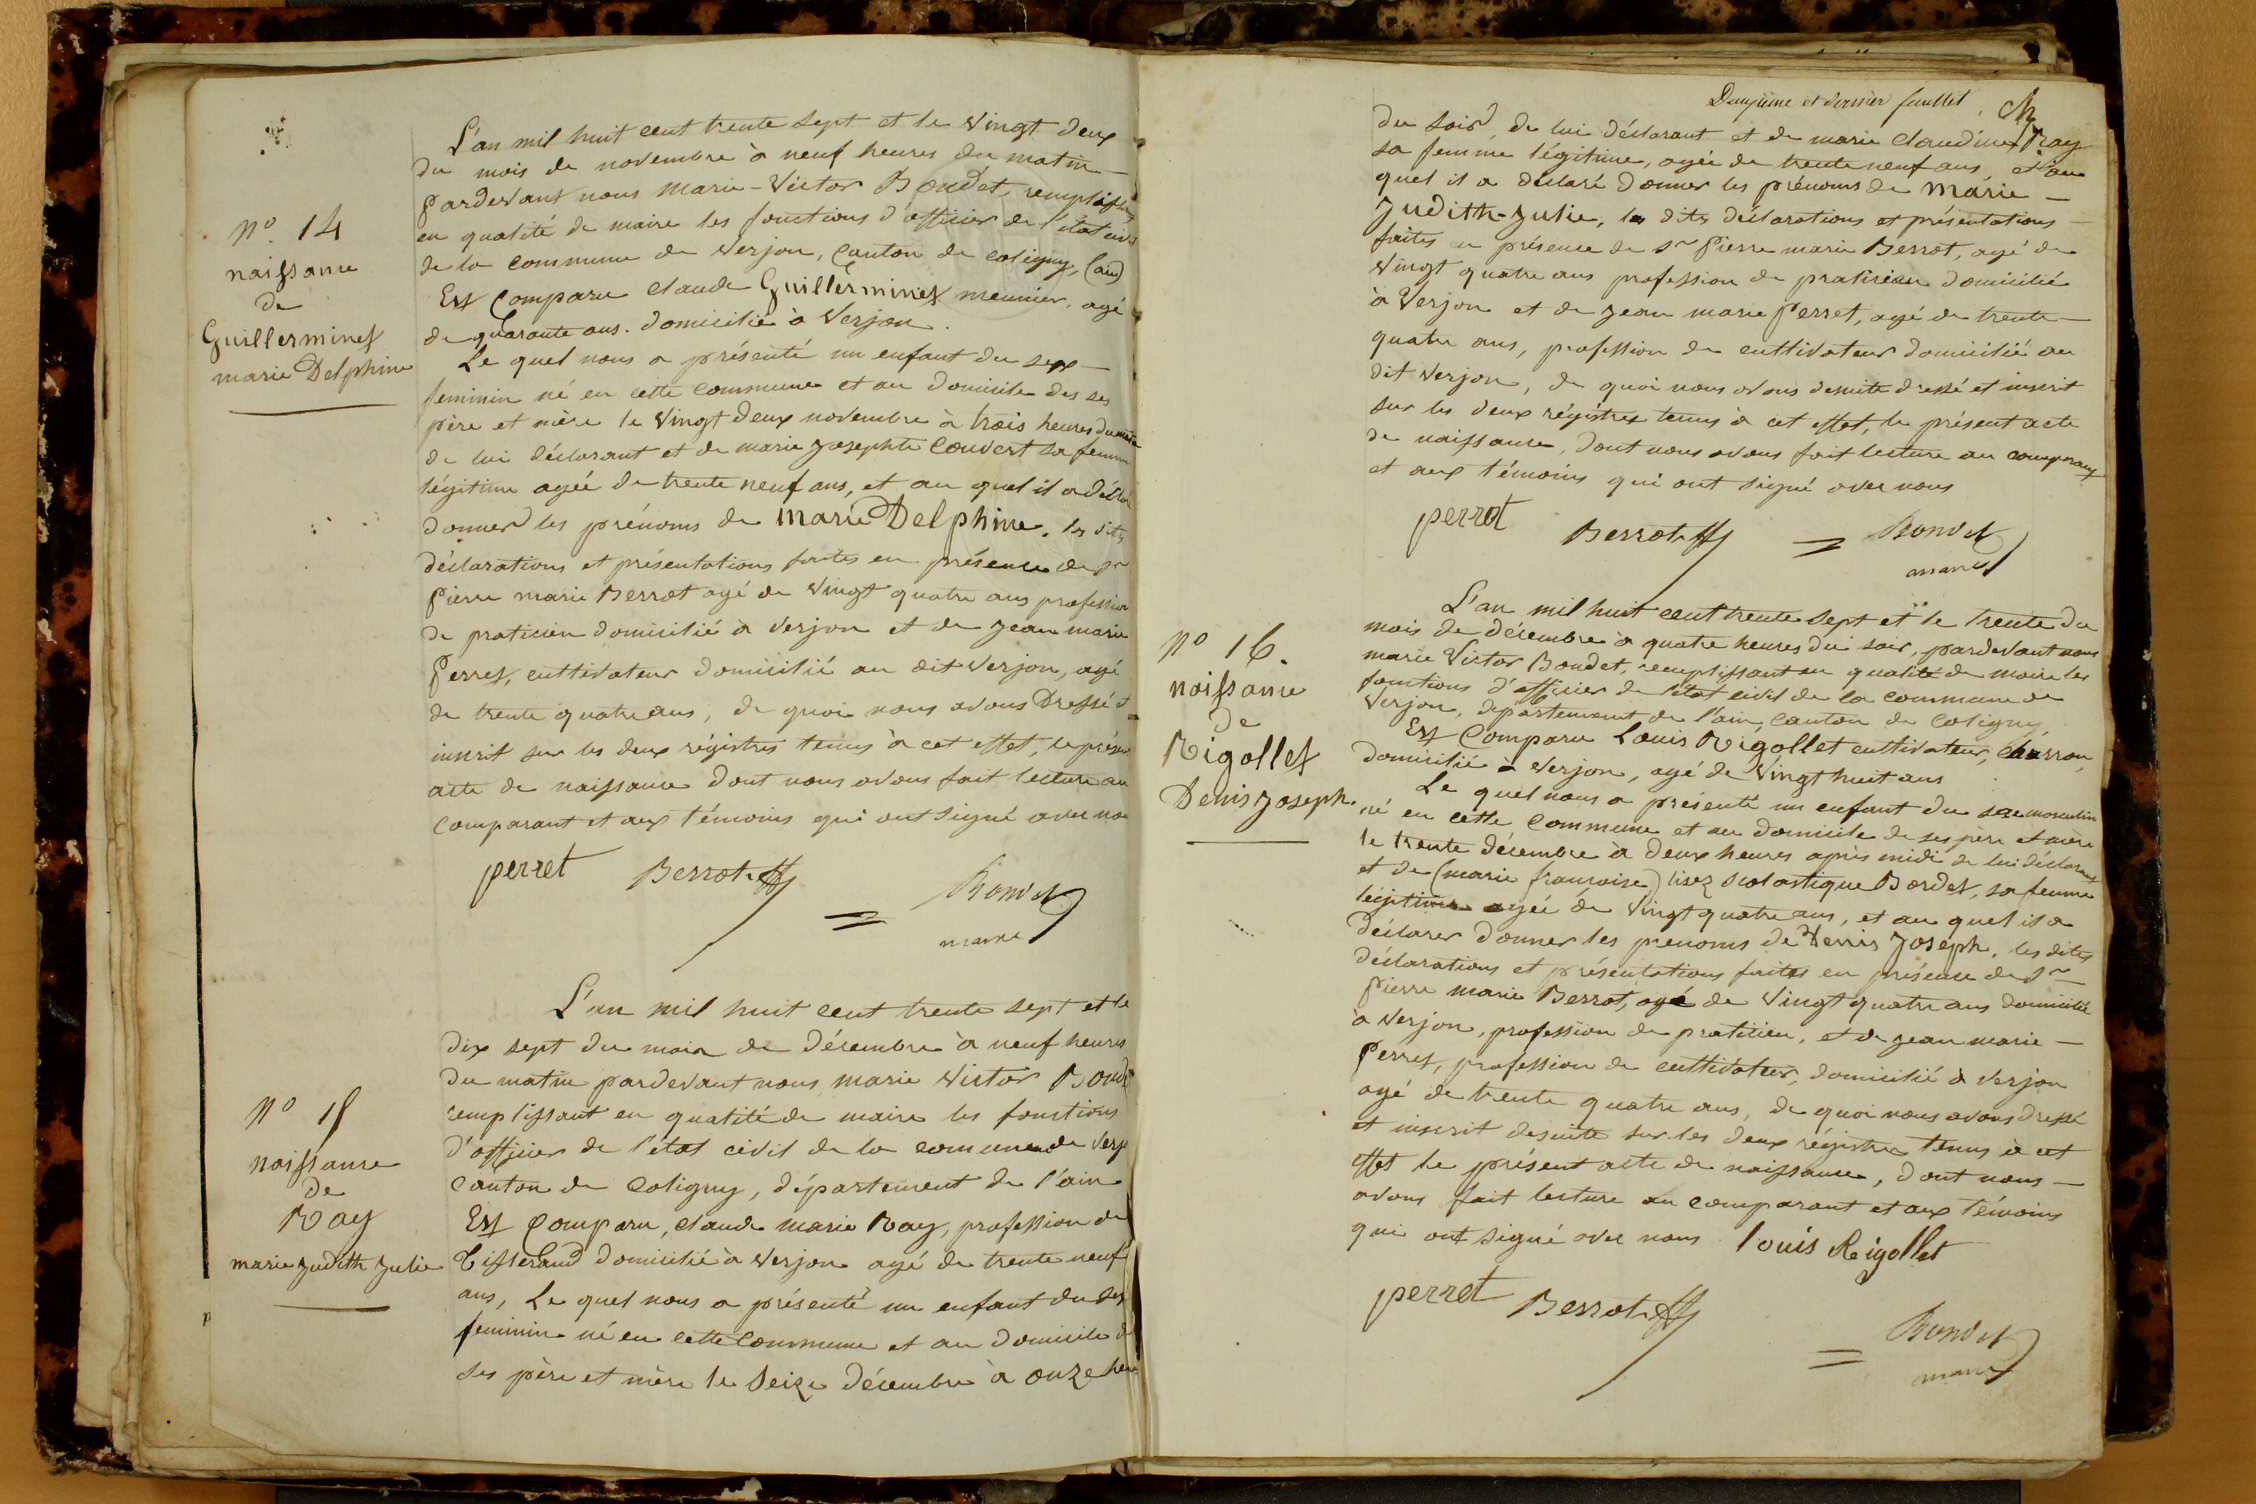 L'an mil huit cent trente sept et le vingt deux
du mois de novembre à neuf heures du matin
pardevant nous Marie-Victor Boudet, remplissant
en qualité de maire les fonctions d'officier de l'état civil
de la commune de Verjon, Canton de coligny, (ain)
Est Comparu Claude Guillerminet meunier, agé
de quarante ans. domicilié à Verjon.
Le quel nous a présenté un enfant du sexe
feminin né en cette commune et au domicile des ses
père et mère le vingt deux novembre à trois heures du matin
de lui déclarant et de marie Josephte Couvert sa femme
légitime agée de trente neuf ans, et au quel il a déclaré
donner les prénoms de Marie Delphine. les dites
déclarations et présentations faites en présence de Sr
Pierre marie Berrot agé de vingt quatre ans profession
de praticien domicilié à Verjon et de Jean marie
Perret, cultivateur domicilié au dit Verjon, agé
de trente quatre ans, de quoi nous avons Dressé et
inscrit sur les deux régistres tenus à cet effet, le présent
acte de naissance dont nous avons fait lecture au
comparant et aux témoins qui ont signé avec nous
perret Berrot Boudet
maire
No. 14
naissance
de
Guillerminet
marie Delphine
L'an mil huit cent trente sept et le
dix sept du mois de décembre à neuf heures
du matin pardevant nous marie Victor Boudet
remplissant en qualité de maire les fonctions
d'officier de l'état civil de la commune de Verj
Canton de Coligny, département de l'ain
Est Comparu, Claude marie Ray, profession de
Tisserand domicilié à Verjon agé de trente neuf
ans, Le quel nous a présenté un enfant du sex
feminin né en cette Commune et au domicile de
ses père et mère le Seize décembre à onze heu
No 15
naissance
de
Ray
marie Judith Julie
Deuxième et dernier feuillet.
du soir, de lui déclarant et de marie Claudine Ray
sa femme légitime, agée de trente neuf ans, et au
quel il a déclaré donner les prénoms de Marie
Judith-Julie, les dites déclarations et présentations
faites en présence de Sr Pierre marie Berrot, agé de
vingt quatre ans profession de praticien domicilié
à Verjon et de Jean marie Perret, agé de trente
quatre ans, profession de cultivateur domicilié au
dit Verjon, de quoi nous avons desuite dressé et inscrit
sur les deux régistres tenus à cet effet, le présent acte
de naissance, dont nous avons fait lecture au comparant
et aux témoins qui ont signé avec nous
perret Berrot Boudet
maire
L'an mil huit cent trente sept et le trente du
mois de décembre à quatre heures du soir, pardevant nous
marie Victor Boudet, remplissant en qualité de maire les
fonctions d'officier de l'état civil de la commune de
Verjon, département de l'ain, canton de Coligny
Est Comparu Louis Rigollet cultivateur, charron,
domicilié à Verjon, agé de vingt huit ans
Le quel nous a présenté un enfant du sexe masculin
né en cette commune et au domicile de ses père et mère
le trente décembre à deux heures après midi de lui déclarant
et de (marie francoise) lisez Scolastique Bordet, sa femme
légitime agée de vingt quatre ans, et au quel il a
déclarer donner les prenoms de Denis Joseph, les dites
déclarations et présentations faites en présence de Sr
Pierre marie Berrot, agé de vingt quatre ans domicilié
à Verjon, profession de praticien, et de Jean marie
Perret, profession de cultivateur, domicilié à Verjon
agé de trente quatre ans, de quoi nous avons dressé
et inscrit desuite sur les deux régistre tenus à cet
effet le présent acte de naissance, dont nous
avons fait lecture au comparant et aux témoins
qui ont signé avec nous Louis Rigollet
perret Berrot Boudet
maire
No 16.
naissance
de
Rigollet
Denis Joseph.